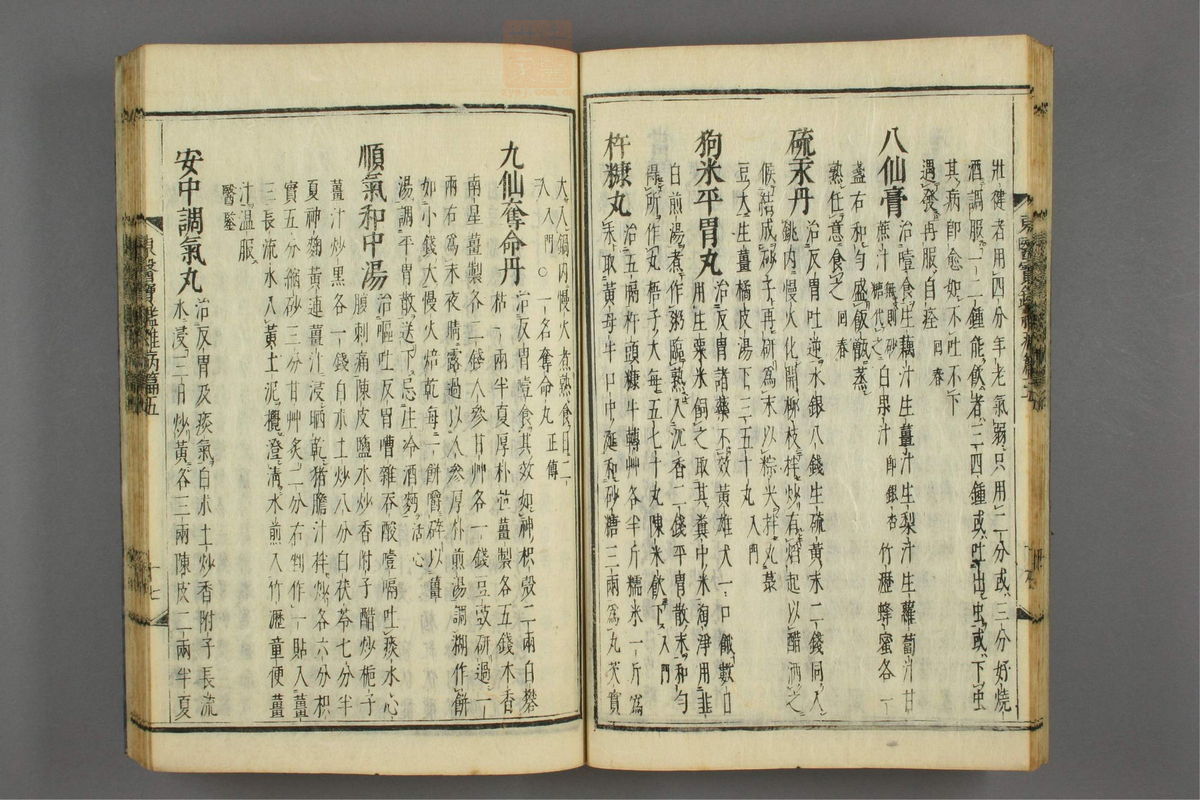 壯健者用四分年老氣弱只用二分或三分好燒
酒調服一二鍾能飮者三四鍾或吐出虫或下虫
其病卽愈如不吐不下
遇發再服自痊 回春
八仙膏 治噎食生藕汁生薑汁生梨汁生蘿葍汁甘
蔗汁 無則砂糖代之 白果汁 卽銀杏 竹瀝蜂蜜各一
盞右和勻盛飯甑蒸
熟任意食之 回春
硫汞丹 治反胃吐逆水銀八錢生硫黃末二錢同入
銚內慢火化開柳枝拌炒有焰起以醋洒之
候結成砂子再硏爲末以粽米拌丸菉
豆大生薑橘皮湯下三五十丸 入門
狗米平胃丸 治反胃諸藥不效黃雄犬一口餓數日
用生粟米飼之取其糞中米淘淨用韭
白煎湯煮作粥臨熟入沉香二錢平胃散末和勻
得所作丸梧子大每五七十丸陳米飮下 入門
杵糠丸 治五膈杵頭糠牛轉艸各半斤糯米一斤爲
末取黃母牛口中涎和砂糖三兩爲丸芡實
東醫寶鑑雜病篇五
大入鍋內慢火煮熟食日二
入 入門 ○一名奪命丸 正傳
九仙奪命丹 治反胃噎食其效如神枳殼二兩白礬
枯一兩半夏厚朴並薑製各五錢木香
南星薑製各二錢人參甘艸各一錢豆豉硏過一
兩右爲末夜晴露過以人參厚朴煎湯調糊作餠
如小錢大慢火焙乾每一餠嚼碎以薑
湯調平胃散送下忌生冷酒麪 活心
順氣和中湯 治嘔吐反胃嘈雜呑酸噎膈吐痰水心
腹刺痛陳皮鹽水炒香附子醋炒梔子
薑汁炒黑各一錢白朮土炒八分白茯苓七分半
夏神麴黃連薑汁浸晒乾猪膽汁拌炒各六分枳
實五分縮砂三分甘艸灸二分右剉作一貼入薑
三長流水入黃土泥攪澄淸水煎入竹瀝童便薑
汁溫服
醫鑑
安中調氣丸 治反胃及痰氣白朮土炒香附子長流
水浸三日炒黃各三兩陳皮二兩半夏
東醫寶鑑雜病篇五
十七